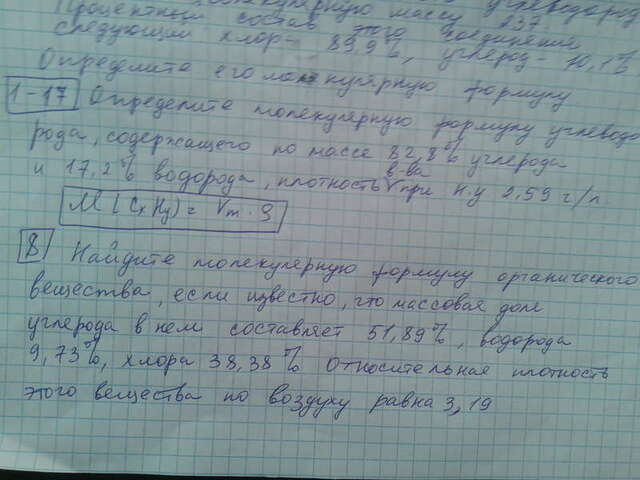 молекулярную массу 237
Процентный состав этого соединения
следующий хлор - 89,9%, углерод - 10,1%
Определите его молекулярную формулу
1-17 Определите молекулярную формулу углеводо
рода, содержащего по массе 82,8% углерода
и 17,2% водорода, плотность в-ва при н.у 2,59 г/л.
M (CxHy) = Vm · ρ
8 Найдите молекулярную формулу органического
вещества, если известно, что массовая доля
углерода в нем составляет 51,89%, водорода
9,73%, хлора 38,38% Относительная плотность
этого вещества по воздуху равна 3,19